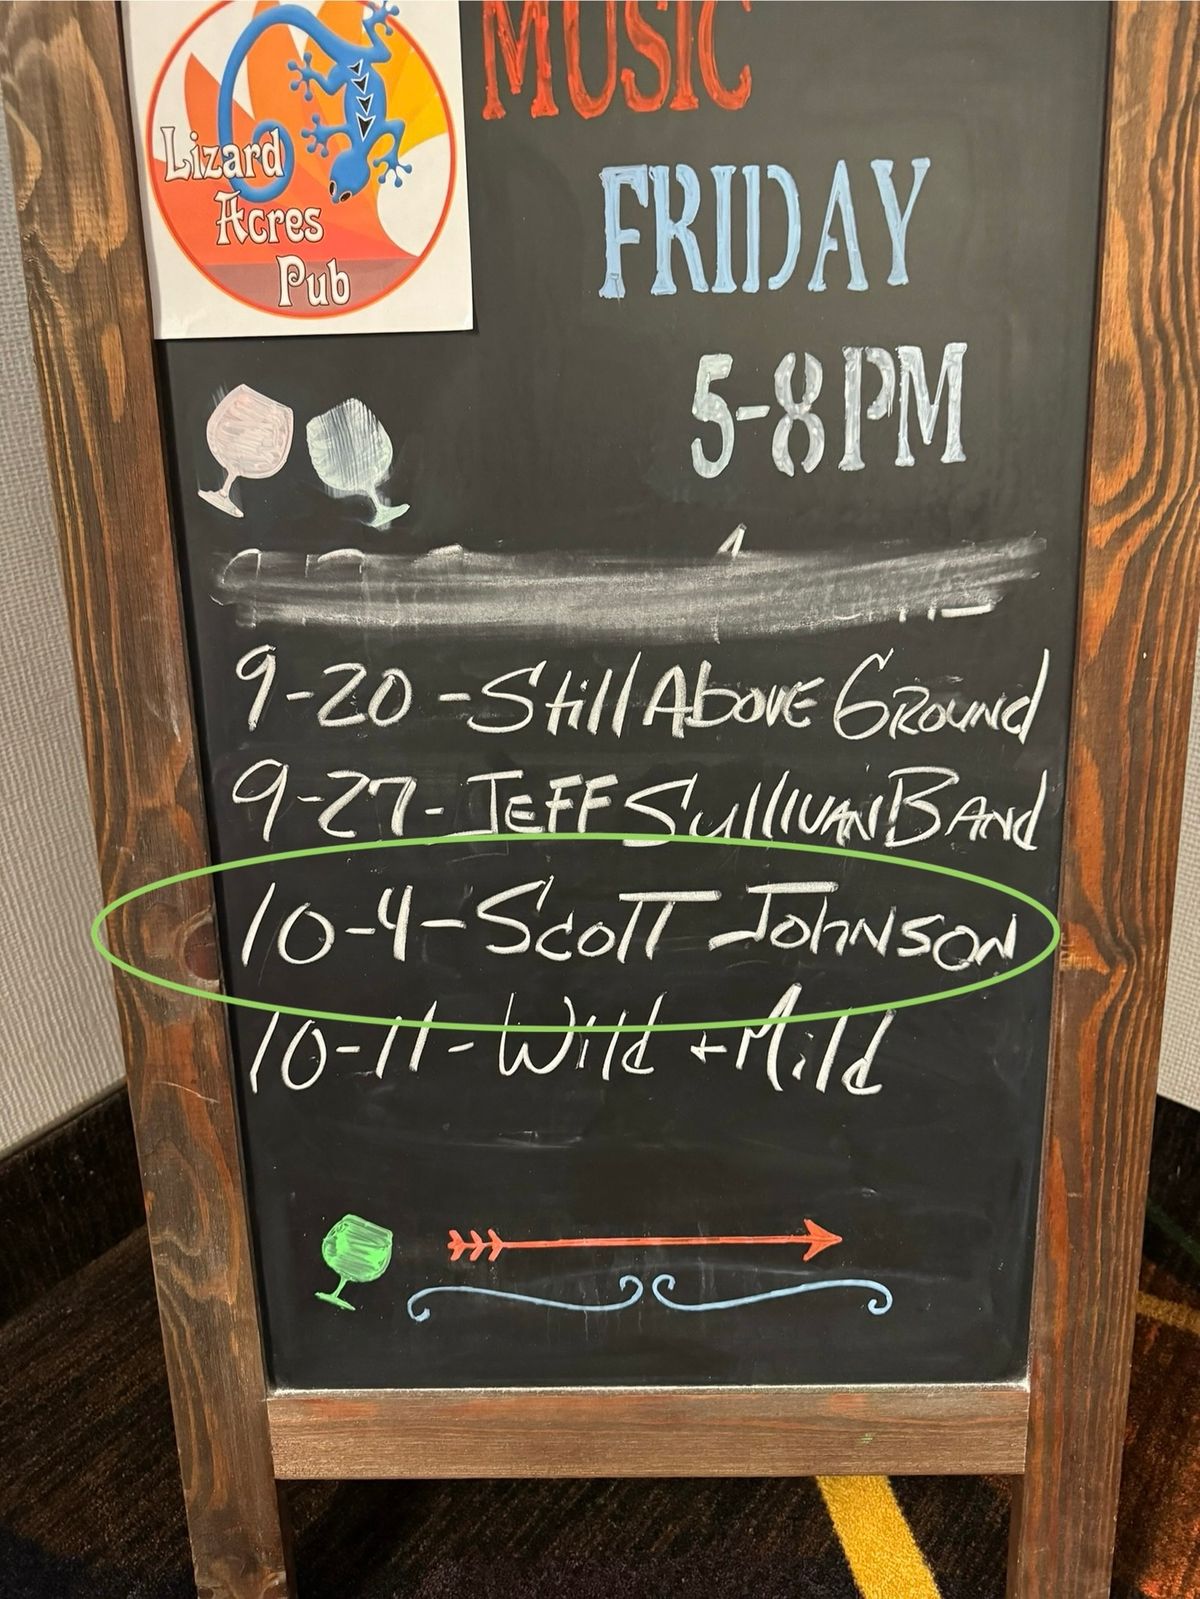 MUSIC
Lizard
Acres
Pub
FRIDAY
5-8PM
9-20-Still Above Ground
9-27-Jeff Sullivan Band
10-4-Scott Johnson
10-11-Wild + Mild